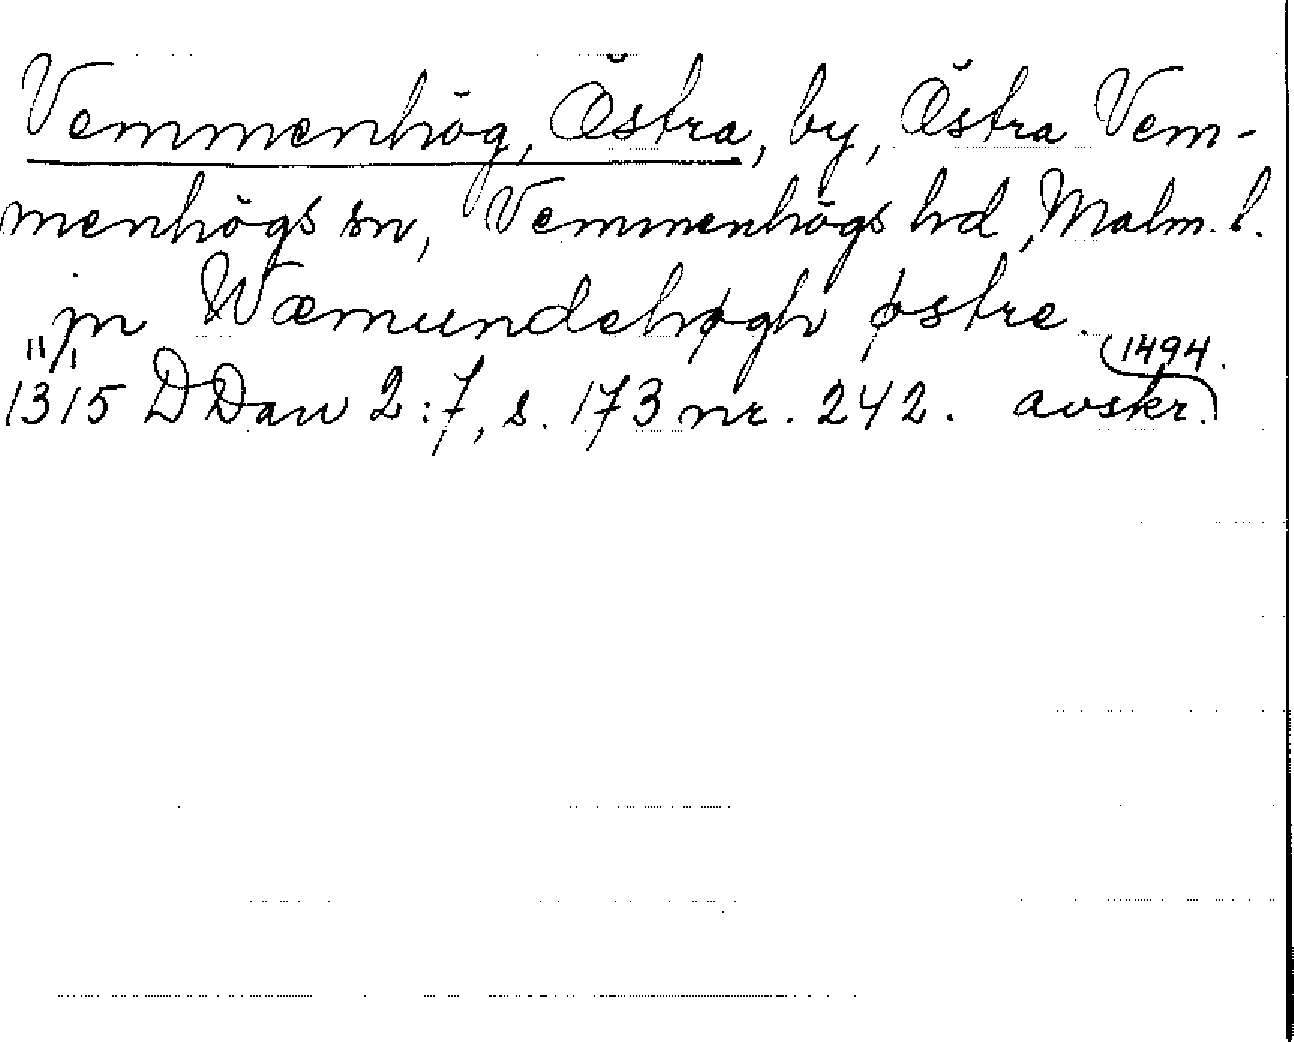 Vemmenhög, Östra, by, Östra Vem-
menhögs sn, Vemmenhögs hd, Malm. l.
jn Wæmundehøgh østre.
1315 DDan 2:7, s. 173 nr. 242. avskr.
1494.